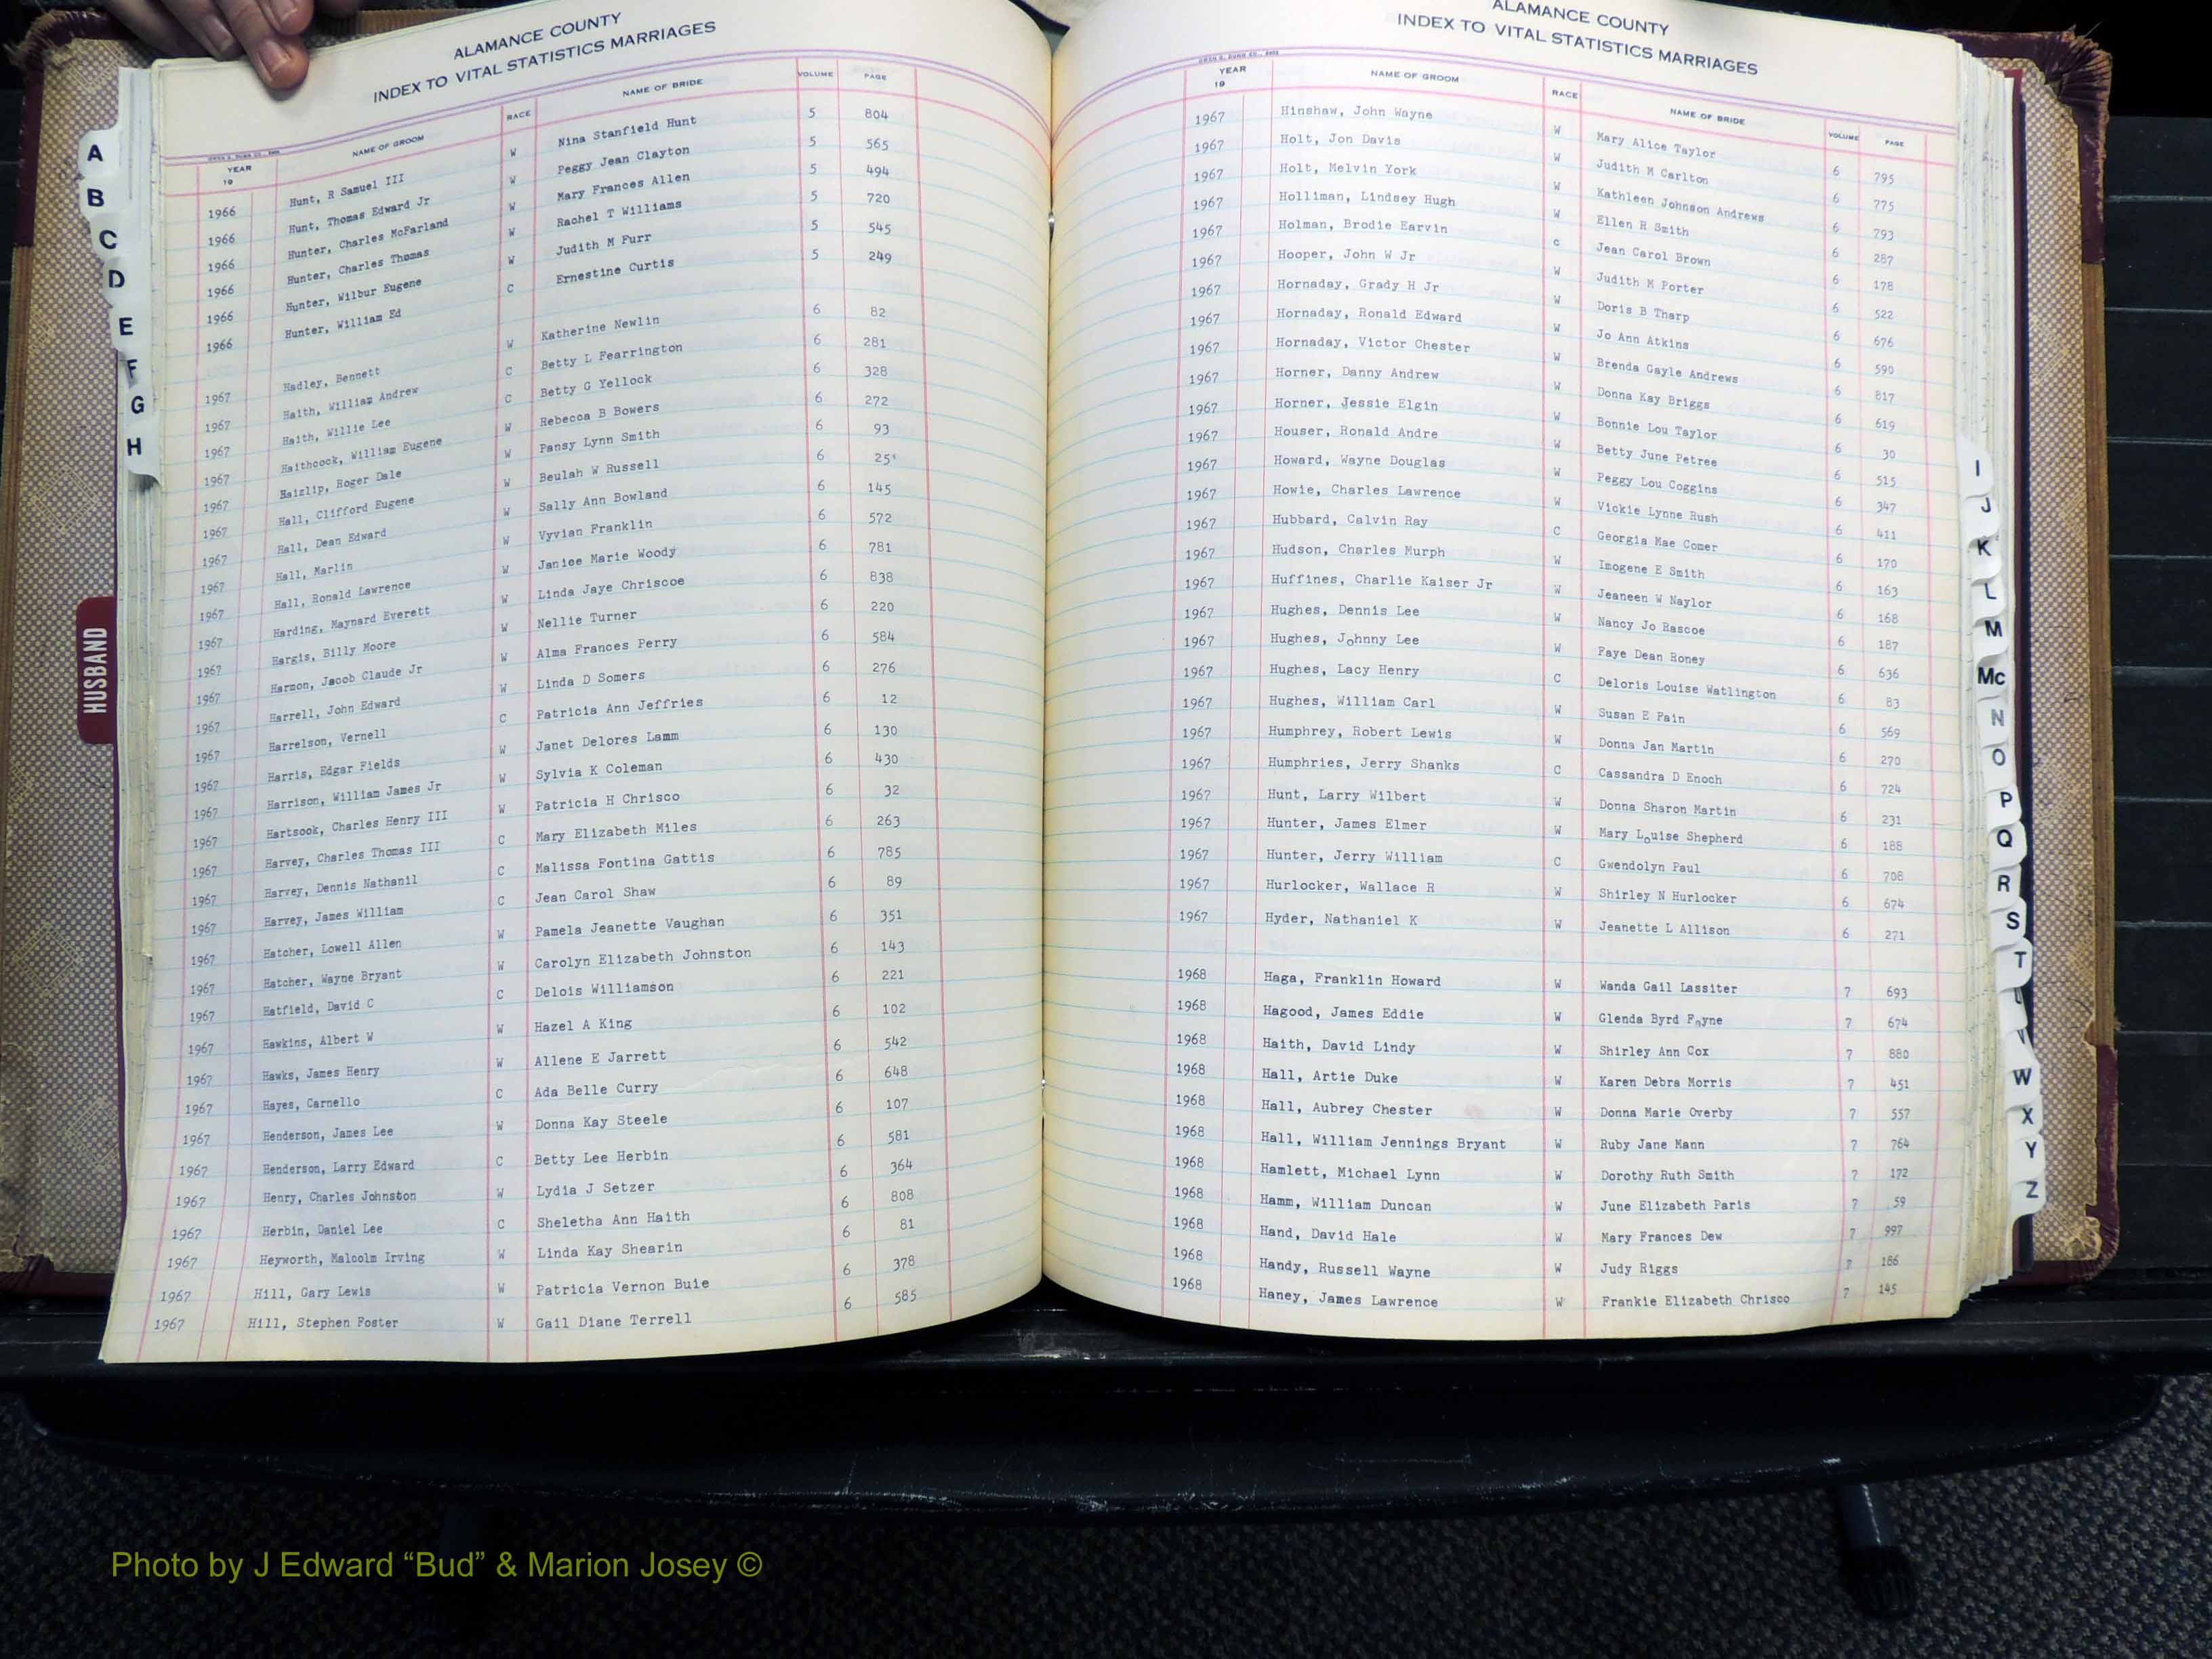 ALAMANCE COUNTY
INDEX TO VITAL STATISTICS MARRIAGES
YEAR 19 NAME OF GROOM RACE NAME OF BRIDE VOLUME PAGE
1966 Hunt, R Samuel III W Nina Stanfield Hunt 5 804
1966 Hunt, Thomas Edward Jr W Peggy Jean Clayton 5 565
1966 Hunter, Charles McFarland W Mary Frances Allen 5 494
1966 Hunter, Charles Thomas W Rachel T Williams 5 720
1966 Hunter, Wilbur Eugene W Judith M Furr 5 545
1966 Hunter, William Ed C Ernestine Curtis 5 249
1967 Hadley, Bennett W Katherine Newlin 6 82
1967 Haith, William Andrew C Betty L Fearrington 6 281
1967 Haith, Willie Lee C Betty G Yellock 6 328
1967 Haithcock, William Eugene W Rebecca B Bowers 6 272
1967 Haizlip, Roger Dale W Pansy Lynn Smith 6 93
1967 Hall, Clifford Eugene W Beulah W Russell 6
1967 Hall, Dean Edward W Sally Ann Bowland 6 145
1967 Hall, Marlin W Vyvian Franklin 6 572
1967 Hall, Ronald Lawrence W Janice Marie Woody 6 781
1967 Harding, Maynard Everett W Linda Jaye Chriscoe 6 838
1967 Hargis, Billy Moore W Nellie Turner 6 220
1967 Harmon, Jacob Claude Jr W Alma Frances Perry 6 584
1967 Harrell, John Edward W Linda D Somers 6 276
1967 Harrelson, Vernell C Patricia Ann Jeffries 6 12
1967 Harris, Edgar Fields W Janet Delores Lamm 6 130
1967 Harrison, William James Jr W Sylvia K Coleman 6 430
1967 Hartsook, Charles Henry III W Patricia H Chrisco 6 32
1967 Harvey, Charles Thomas III C Mary Elizabeth Miles 6 263
1967 Harvey, Dennis Nathanil C Malissa Fontina Gattis 6 785
1967 Harvey, James William C Jean Carol Shaw 6 89
1967 Hatcher, Lowell Allen W Pamela Jeanette Vaughan 6 351
1967 Hatcher, Wayne Bryant W Carolyn Elizabeth Johnston 6 143
1967 Hatfield, David C C Delois Williamson 6 221
1967 Hawkins, Albert W W Hazel A King 6 102
1967 Hawks, James Henry W Allene E Jarrett 6 542
1967 Hayes, Carnello C Ada Belle Curry 6 648
1967 Henderson, James Lee W Donna Kay Steele 6 107
1967 Henderson, Larry Edward C Betty Lee Herbin 6 581
1967 Henry, Charles Johnston W Lydia J Setzer 6 364
1967 Herbin, Daniel Lee C Sheletha Ann Haith 6 808
1967 Heyworth, Malcolm Irving W Linda Kay Shearin 6 81
1967 Hill, Gary Lewis W Patricia Vernon Buie 6 378
1967 Hill, Stephen Foster W Gail Diane Terrell 6 585
A
B
C
D
E
F
G
H
HUSBAND
ALAMANCE COUNTY
INDEX TO VITAL STATISTICS MARRIAGES
YEAR 19 NAME OF GROOM RACE NAME OF BRIDE VOLUME PAGE
1967 Hinshaw, John Wayne W Mary Alice Taylor 6 795
1967 Holt, Jon Davis W Judith M Carlton 6 775
1967 Holt, Melvin York W Kathleen Johnson Andrews 6 793
1967 Holliman, Lindsey Hugh W Ellen H Smith 6 287
1967 Holman, Brodie Earvin c Jean Carol Brown 6 178
1967 Hooper, John W Jr W Judith M Porter 6 522
1967 Hornaday, Grady H Jr W Doris B Tharp 6 676
1967 Hornaday, Ronald Edward W Jo Ann Atkins 6 590
1967 Hornaday, Victor Chester W Brenda Gayle Andrews 6 817
1967 Horner, Danny Andrew W Donna Kay Briggs 6 619
1967 Horner, Jessie Elgin W Bonnie Lou Taylor 6 30
1967 Houser, Ronald Andre W Betty June Petree 6 515
1967 Howard, Wayne Douglas W Peggy Lou Coggins 6 347
1967 Howie, Charles Lawrence W Vickie Lynne Rush 6 411
1967 Hubbard, Calvin Ray C Georgia Mae Comer 6 170
1967 Hudson, Charles Murph W Imogene E Smith 6 163
1967 Huffines, Charlie Kaiser Jr W Jeaneen W Naylor 6 168
1967 Hughes, Dennis Lee W Nancy Jo Rascoe 6 187
1967 Hughes, Johnny Lee W Faye Dean Roney 6 636
1967 Hughes, Lacy Henry C Deloris Louise Watlington 6 83
1967 Hughes, William Carl W Susan E Pain 6 569
1967 Humphrey, Robert Lewis W Donna Jan Martin 6 270
1967 Humphries, Jerry Shanks C Cassandra D Enoch 6 724
1967 Hunt, Larry Wilbert W Donna Sharon Martin 6 231
1967 Hunter, James Elmer W Mary Louise Shepherd 6 188
1967 Hunter, Jerry William C Gwendolyn Paul 6 708
1967 Hurlocker, Wallace R W Shirley N Hurlocker 6 674
1967 Hyder, Nathaniel K W Jeanette L Allison 6 271
1968 Haga, Franklin Howard W Wanda Gail Lassiter 7 693
1968 Hagood, James Eddie W Glenda Byrd Fayne 7 674
1968 Haith, David Lindy W Shirley Ann Cox 7 880
1968 Hall, Artie Duke W Karen Debra Morris 7 451
1968 Hall, Aubrey Chester W Donna Marie Overby 7 557
1968 Hall, William Jennings Bryant W Ruby Jane Mann 7 764
1968 Hamlett, Michael Lynn W Dorothy Ruth Smith 7 172
1968 Hamm, William Duncan W June Elizabeth Paris 7 59
1968 Hand, David Hale W Mary Frances Dew 7 997
1968 Handy, Russell Wayne W Judy Riggs 7 186
1968 Haney, James Lawrence W Frankie Elizabeth Chrisco 7 145
I
J
K
L
M
Mc
N
O
P
Q
R
S
T
V
W
X
Y
Z
Photo by J Edward “Bud” & Marion Josey ©